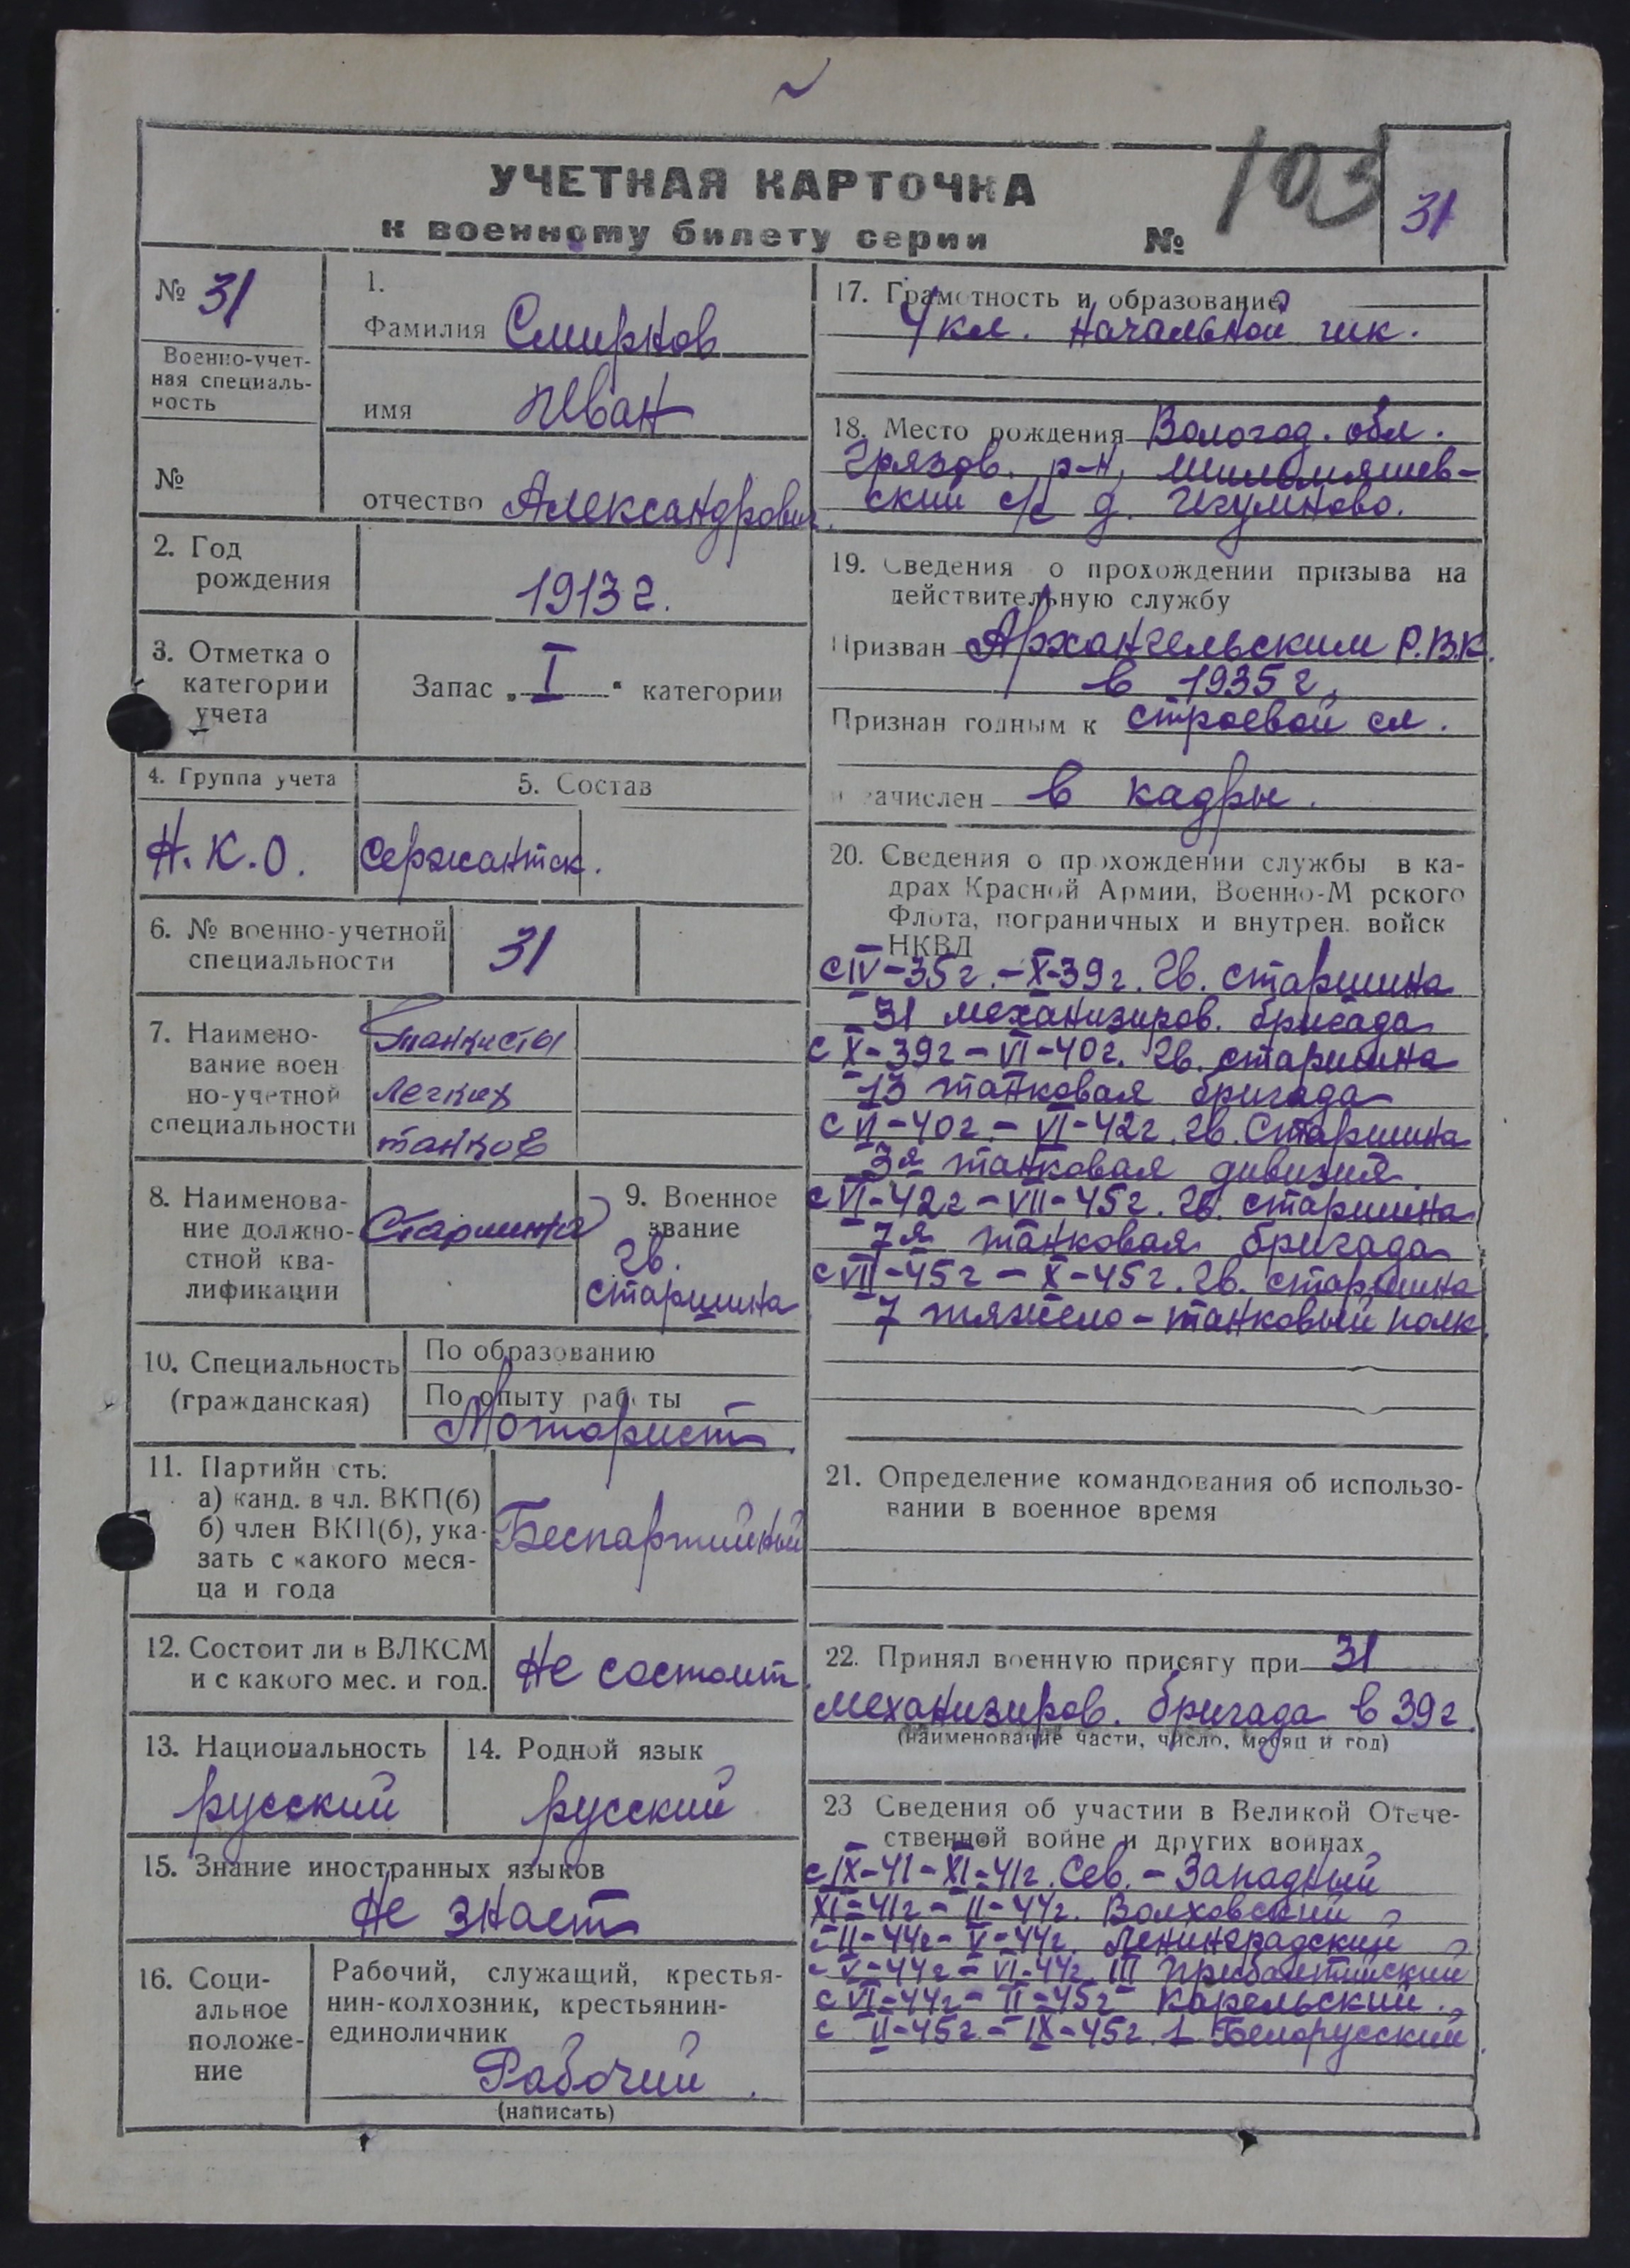 УЧЕТНАЯ КАРТОЧКА
к военному билету серии №
103
31
№ 31
Военно-учет-
ная специаль-
ность
№
1.
Фамилия Смирнов
имя Иван
отчество Александрович.
2. Год
рождения
1913 г.
3. Отметка о
категории
учета
Запас „I“ категории
4. Группа учета
Н.К.О.
5. Состав
Сержантск.
6. № военно-учетной
специальности
31
7. Наимено-
вание воен
но-учетной
специальности
танкисты
легких
танков
8. Наименова-
ние должно-
стной ква-
лификации
Старшина
9. Военное
звание
Гв.
старшина
10. Специальность
(гражданская)
По образованию
По опыту раб ты
Моторист.
11. Партийн сть:
а) канд. в чл. ВКП(б)
б) член ВКП(б), ука-
зать с какого меся-
ца и года
Беспартийный
12. Состоит ли в ВЛКСМ
и с какого мес. и год.
Не состоит
13. Национальность
русский
14. Родной язык
русский
15. Знание иностранных языков
Не знает
16. Соци-
альное
положе-
ние
Рабочий, служащий, крестья-
нин-колхозник, крестьянин-
единоличник
Рабочий.
(написать)
17. Грамотность и образование
4 кл. начальной шк.
18. Место рождения Вологод. обл.
Грязов. р-н,
ский с/с д. Игумново.
19. Сведения о прохождении призыва на
действительную службу
Призван Архангельским Р.В.К.
в 1935 г.
Признан годным к строевой сл.
и зачислен в кадры.
20. Сведения о прохождении службы в ка-
драх Красной Армии, Военно-М рского
Флота, пограничных и внутрен. войск
НКВД
с IV-35г. - X-39г. Гв. старшина
31 механизиров. бригада
с X-39г - VI-40г. Гв. старшина
13 танковая бригада
с VI-40г. - VI-42г. Гв. Старшина
3я танковая дивизия.
с VI-42г - VII-45г. Гв. старшина
7я танковая бригада
с VII-45г - X-45г. Гв. старшина
7 тяжело-танковый полк.
21. Определение командования об использо-
вании в военное время
22. Принял военную присягу при 31
механизиров. бригада в 39г.
(наименование части, число, месяц и год)
23 Сведения об участии в Великой Отече-
ственной войне и других войнах
с IX-41 - XI-41г. Сев.-Западный
XI-41г - II-44г. Волховский
с II-44г - V-44г. Ленинградский
с V-44г - VI-44г III Прибалтийский
с VI-44г - II-45г Карельский.
с II-45г - IX-45г. 1 Белорусский.